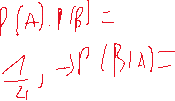 P(A).P(B)=
1/4, →P(B|A)=